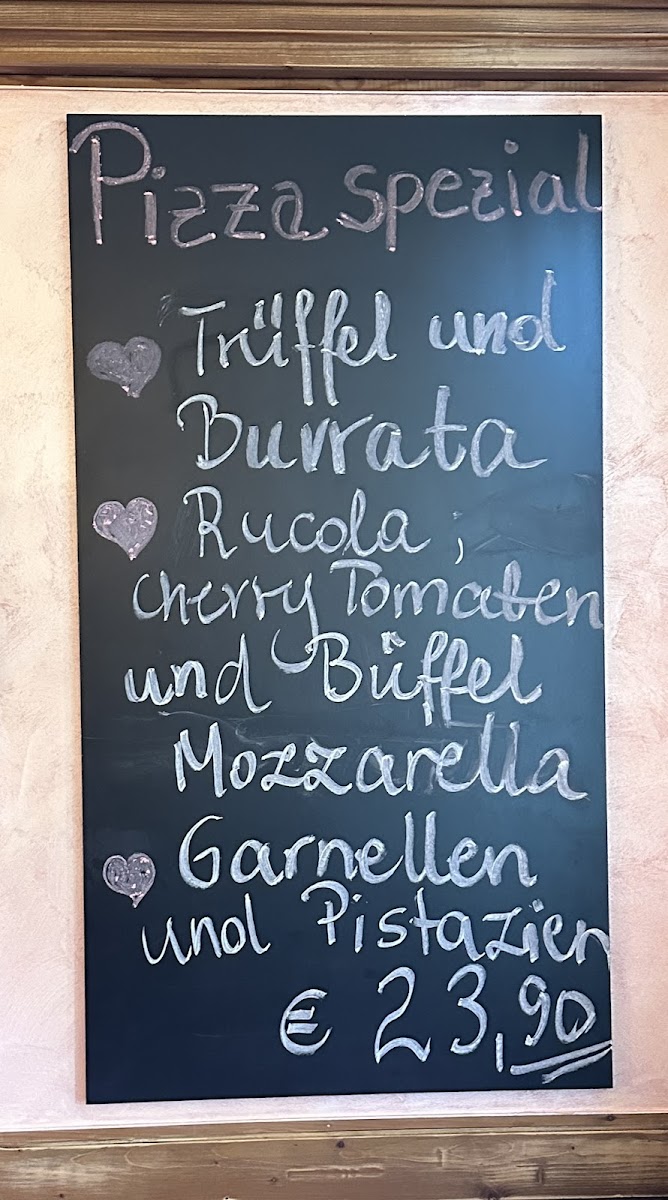 Pizza spezial
Trüffel und
Burrata
Rucola,
cherry Tomaten
und Büffel
Mozzarella
Garnellen
und Pistazien
€ 23,90